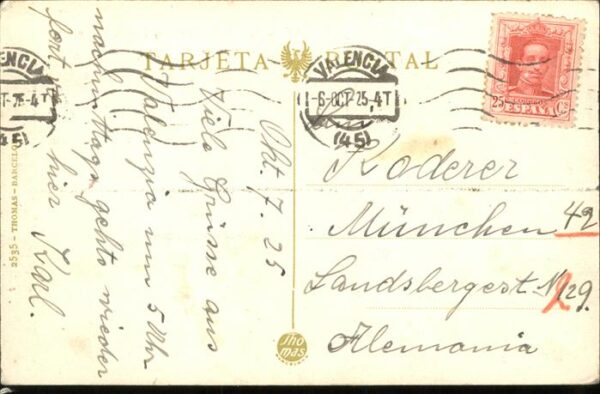 TARJETA POSTAL
VALENCIA
-6 OCT 25.4T
(45)
25 Cs
ESPAÑA
Okt. 7. 25
Viele Grüsse aus
Valenzia um 5 Uhr
nachmittags gehts wieder
fort, hier Karl.
Roderer
München 42
Landsbergerst № 129.
Alemania
2535 - THOMAS - BARCELO
Thomas